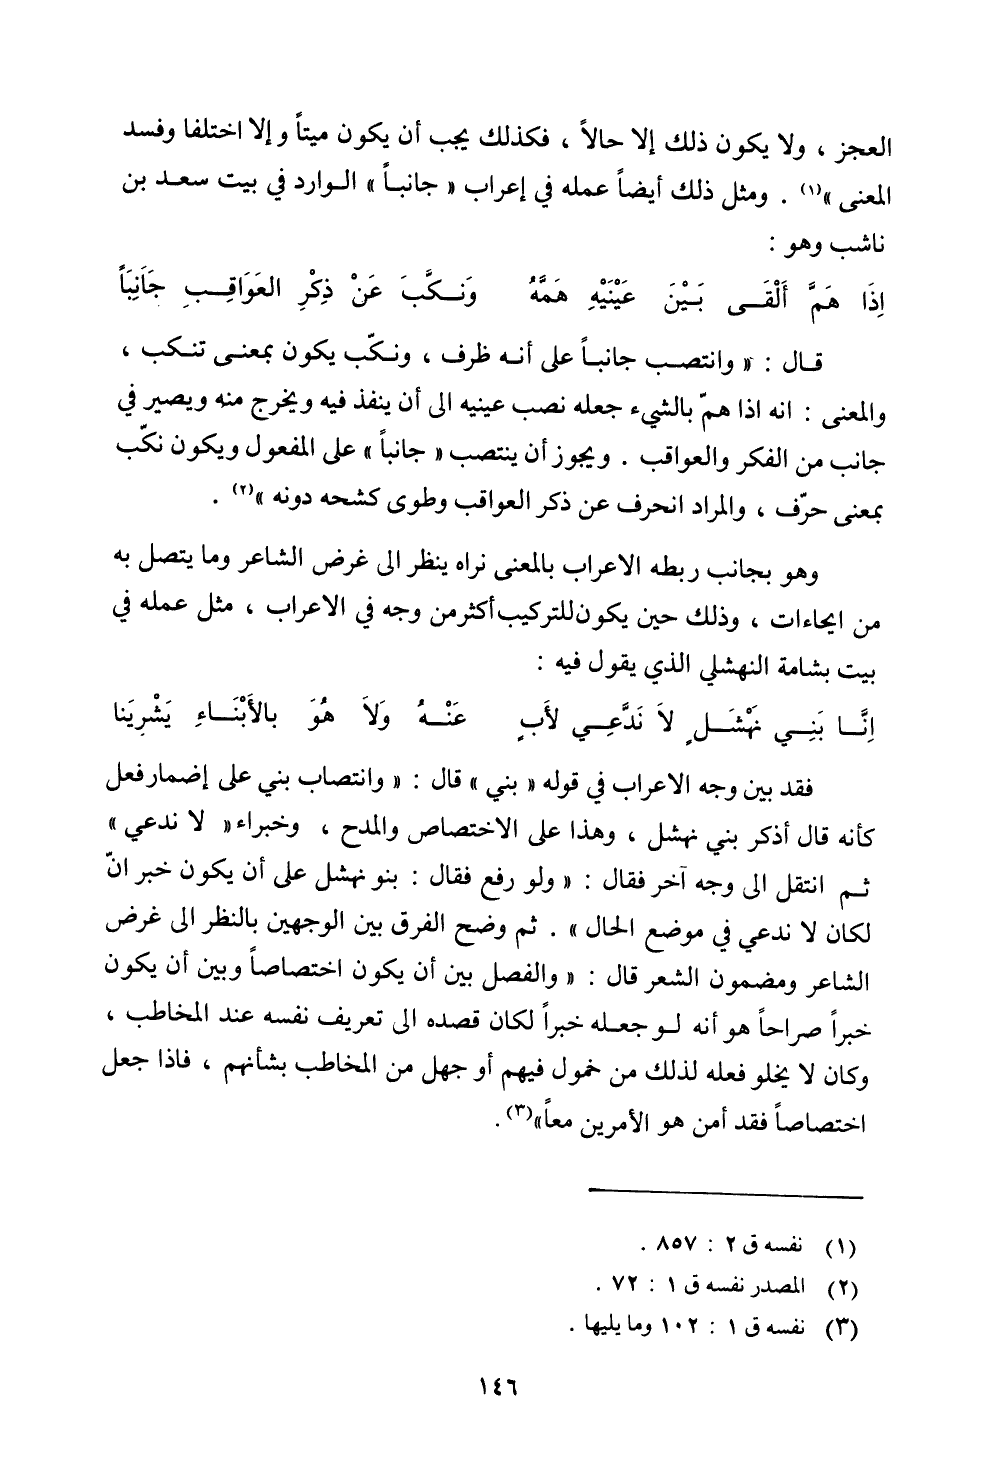 العجز ، ولا يكون ذلك إلا حالاً ، فكذلك يجب أن يكون ميتاً وإلا اختلفا وفسد
المعنى »(١) . ومثل ذلك أيضاً عمله في إعراب « جانبـاً » الـوارد في بيت سعـد بن
ناشب وهو :
إِذَا هَمَّ أَلْقَــى بَـيْنَ عَيْنَيْهِ هَمَّهُ ونَـكَّبَ عَنْ ذِكْرِ العَوَاقِـبِ جَانِبَاً
قـال : « وانتصـب جانبـاً على أنـه ظرف ، ونـكّب يكون بمعنـى تنـكب ،
والمعنى : انه اذا همّ بالشيء جعله نصب عينيه الى أن ينفذ فيه ويخرج منه ويصير في
جانب من الفكر والعواقب . ويجوز أن ينتصب « جانباً » على المفعول ويكون نكّب
بمعنى حرّف ، والمراد انحرف عن ذكر العواقب وطوى كشحه دونه »(٢) .
وهو بجانب ربطه الاعراب بالمعنى نراه ينظر الى غرض الشاعر وما يتصل به
من ايحاءات ، وذلك حين يكون للتركيب أكثر من وجه في الاعراب ، مثل عمله في
بيت بشامة النهشلي الذي يقول فيه :
إِنَّـا بَنِـي نَهْشَـلٍ لاَ نَدَّعِـي لأَبٍ عَنْـهُ وَلاَ هُوَ بالأَبْنَـاءِ يَشْرِيَنا
فقد بين وجه الاعراب في قوله « بني » قال : « وانتصاب بني على إضمار فعل
كأنه قال أذكر بني نهشل ، وهذا على الاختصاص والمدح ، وخبراء« لا ندعي »
ثـم انتقل الى وجه آخر فقال : « ولو رفع فقال : بنو نهشل على أن يكون خبر انّ
لكان لا ندعي في موضع الحال » . ثم وضح الفرق بين الوجهين بالنظر الى غرض
الشاعر ومضمون الشعر قال : « والفصل بين أن يكون اختصاصاً وبين أن يكون
خبراً صراحاً هو أنه لـو جعلـه خبراً لكان قصده الى تعريف نفسه عند المخاطب ،
وكان لا يخلو فعله لذلك من خمول فيهم أو جهل من المخاطب بشأنهم ، فاذا جعل
اختصاصاً فقد أمن هو الأمرين معاً»(٣) .
(١) نفسه ق ٢ : ٨٥٧ .
(٢) المصدر نفسه ق ١ : ٧٢ .
(٣) نفسه ق ١ : ١٠٢ وما يليها .
١٤٦